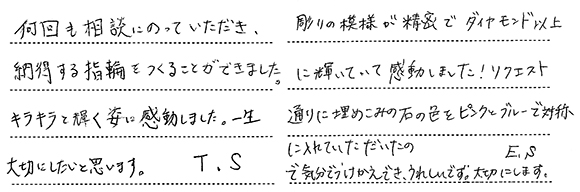 何回も相談にのっていただき、
納得する指輪をつくることができました。
キラキラと輝く姿に感動しました。一生
大切にしたいと思います。 T.S
彫りの模様が精密でダイヤモンド以上
に輝いていて感動しました！リクエスト
通りに埋めこみの石の色をピンクとブルーで対称
に入れていただいたの E.S
で気分でうけかんでき、うれしいです。大切にします。